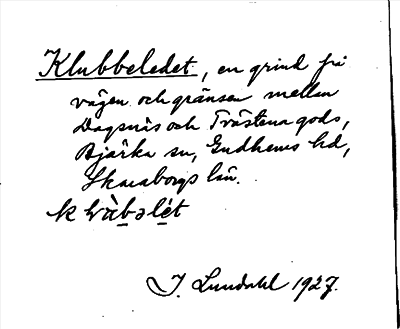 Klubbeledet, en grind på
vägen och gränsen mellan
Dagsnäs och Tvästena gods,
Bjärka sn, Gudhems hd,
Skaraborgs län.
I. Lundahl 1927.